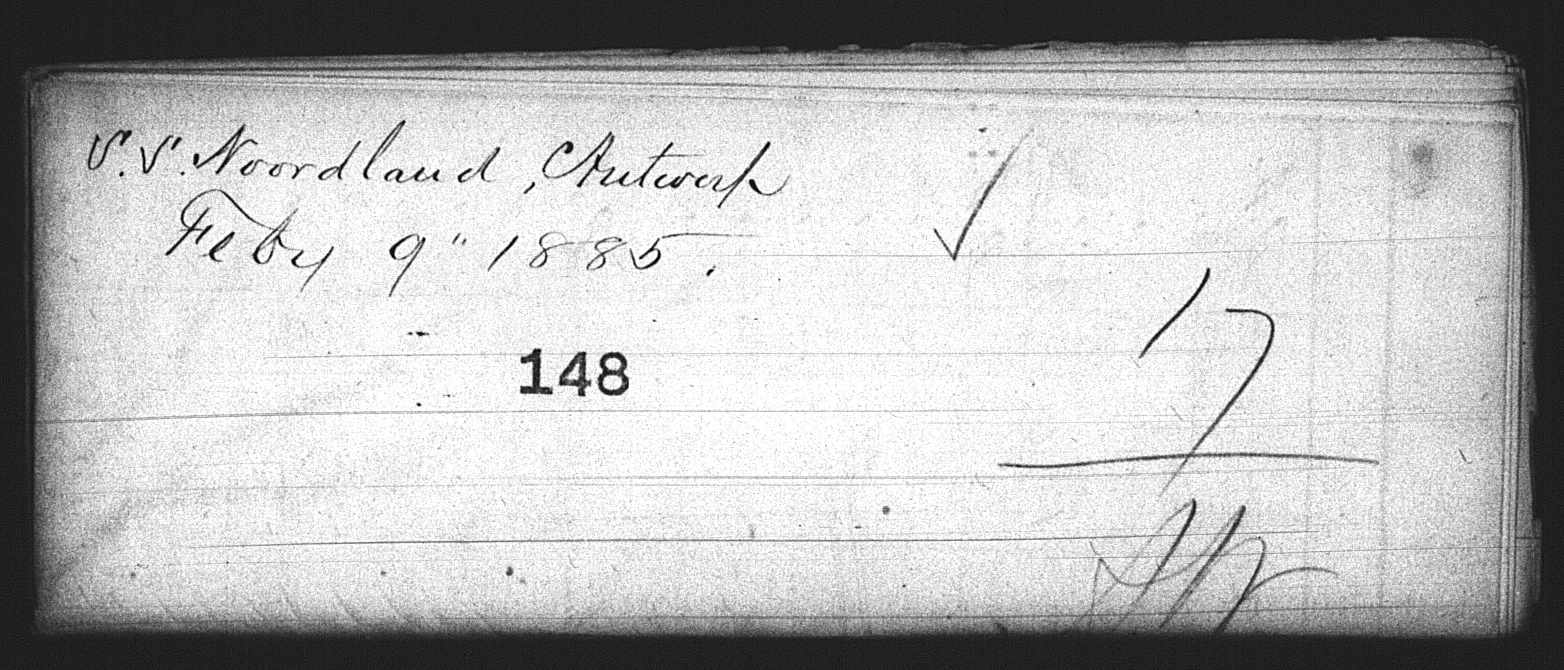 S.S. Noordland, Antwerp
Feby 9" 1885.
148
17